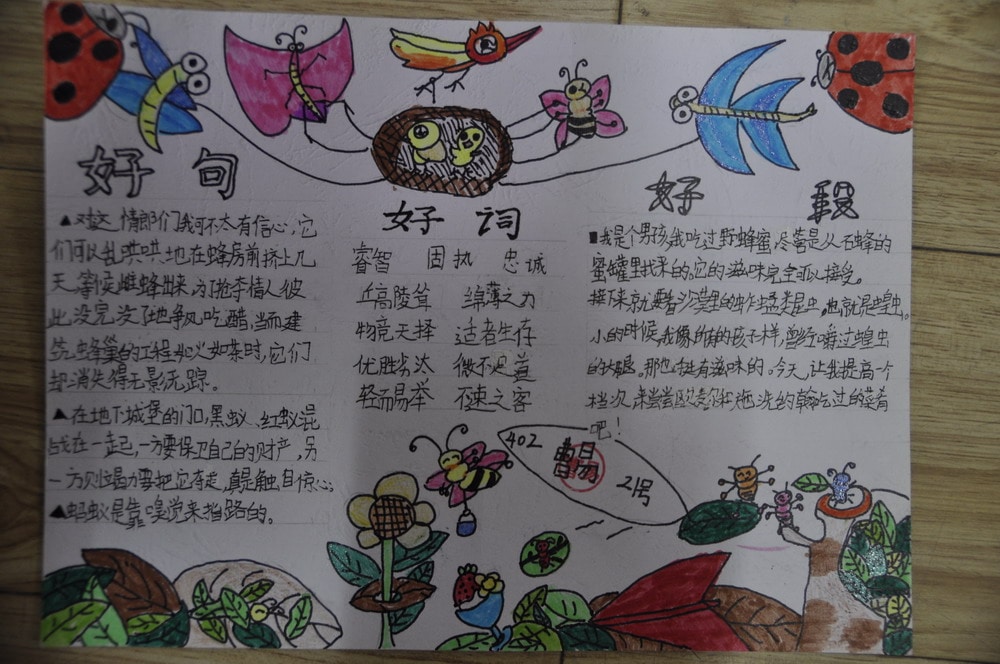 好句
▲对这情郎们我可不太有信心,它
们可以乱哄哄地在蜂房前挤上几
天,等候雌蜂出来,为了抢夺情人彼
此没完没了地争风吃醋,当而建
筑蜂巢的工程如火如荼时,它们
却消失得无影无踪。
▲在地下城堡的门口,黑蚁、红蚁混
战在一起,一方要保卫自己的财产,另
一方则竭力要把它夺走,真是触目惊心;
▲蚂蚁是靠嗅觉来指路的。
好词
睿智 固执 忠诚
丘高陵耸 绵薄之力
物竞天择 适者生存
优胜劣汰 微不足道
轻而易举 不速之客
好段
■我是个男孩,我吃过野蜂蜜,尽管是从石蜂的
蜜罐里找来的,它的滋味完全可以接受。
接下来就要看沙漠里的蚱蜢类昆虫,也就是蝗虫。
小的时候,我像所有的孩子样,曾经嚼过蝗虫
的大腿。那也挺有滋味的。今天,让我提高一个
档次,来尝尝欧麦尔和施洗约翰吃过的菜肴
吧!
402
21号